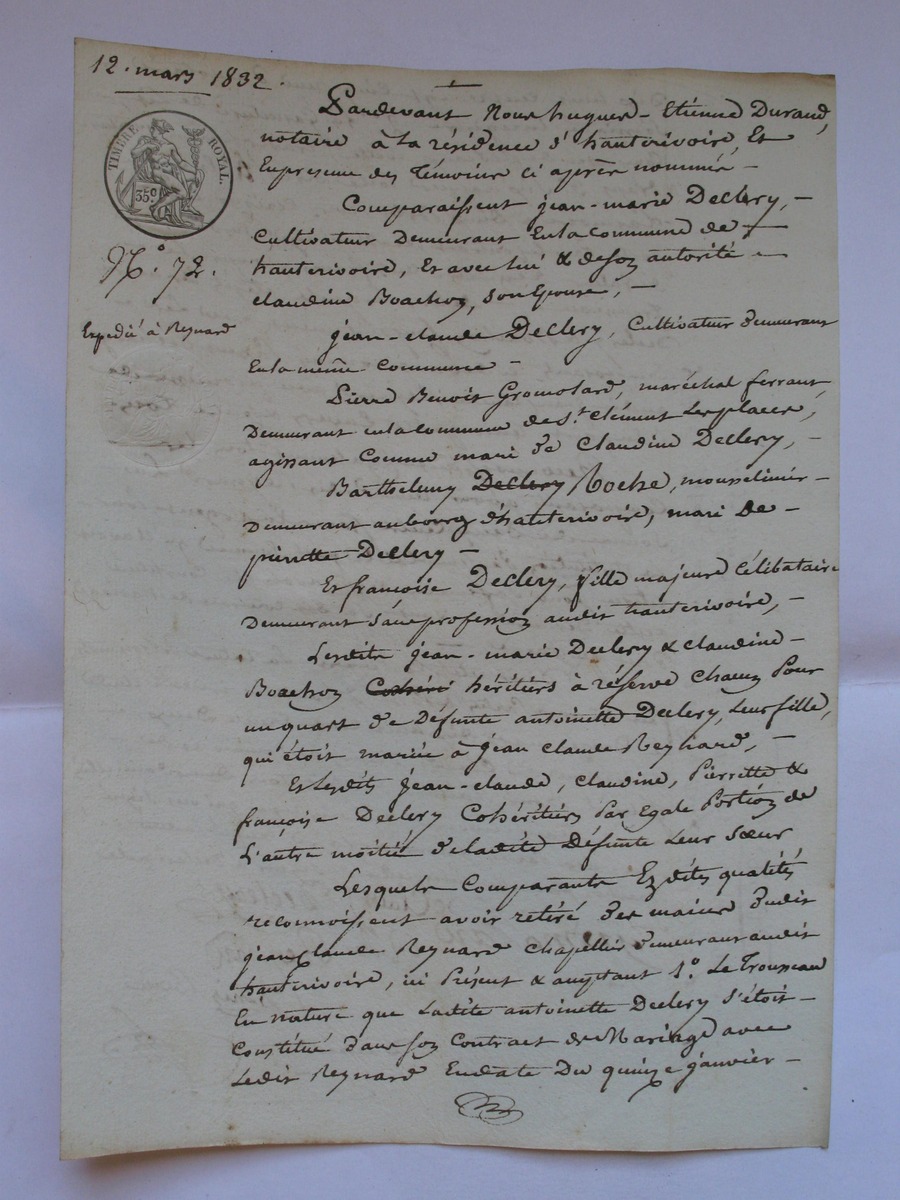 12. mars 1832.
TIMBRE ROYAL.
35 c
N.° 72.
Expedié à Reynard
Pardevant Nous hugues-Etienne Durand,
notaire à la résidence d'hauterivoire, Et
En presence des Témoins ci après nommés —
Comparaissent jean-marie Declery, —
Cultivateur Demeurant En la commune de —
hauterivoire, Et avec lui & de son autorité —
claudine Boachon, son Epouse, —
jean-claude Declery, Cultivateur demeurant
En la même commune —
Pierre Benoit Gromolard, maréchal ferrant
Demeurant en la commune de St. Clément Les places,
agissant Comme mari de Claudine Declery, —
Barthelemy Declery Roche, mousselinier
Demeurant au bourg d'hauterivoire, mari de —
pierrette Declery —
Et françoise Declery, fille majeure Célibataire
Demeurant sans profession audit hauterivoire, —
Lesdits jean-marie Declery & claudine —
Boachon Cohéri héritiers à réserve Chacun Pour
un quart de Défunte antoinette Declery, Leur fille,
qui étoit mariée à jean claude Reynard, —
Et Lesdits jean-claude, claudine, Pierrette &
françoise Declery Cohéritiers Par Egale Portion de
L'autre moitié de ladite Défunte Leur Sœur
Lesquels Comparants Ezdites qualités
reconnoissent avoir retiré des mains dudit
jean Claude Reynard Chapellier demeurant audit
hauterivoire, ici Présent & acceptant 1.° Le Trousseau
En nature que Ladite antoinette Declery s'étoit —
Constitué dans son Contract de Mariage avec
Ledit Reynard En date Du quinze janvier —